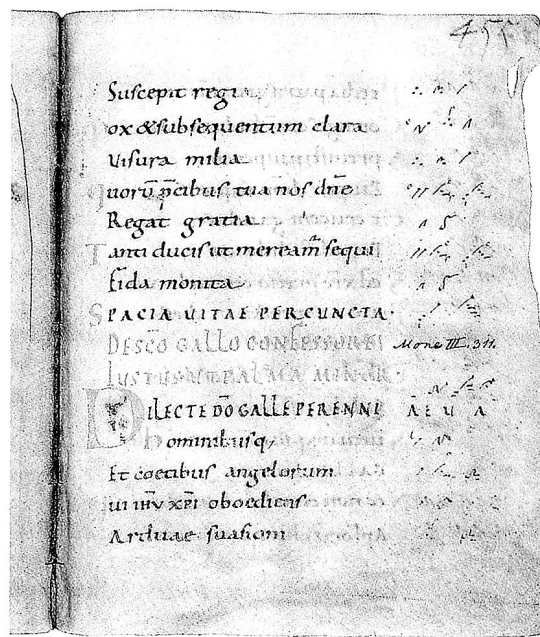 455
Suscepit regia
ox & subsequentum clara
Visura milia
uorū p̄cibus tua nos dn̄e
Regat gratia
Tanti ducis ut meream̄ sequi
fida monita
SPACIA VITAE PER CUNCTA.
DE SC̄O GALLO CONFESSORE
Mone III. 311.
IUSTUS UT PALMA MINOR.
DILECTE DŌ GALLE PERENNI
A E U A
hominibusq,
Et coetibus angelorum
ui ih̄u xp̄i oboediens
Arduae suasioni